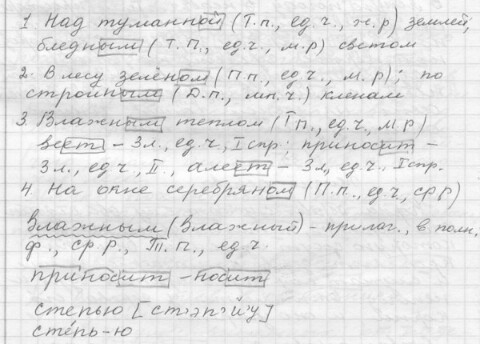 1. Над туманной (Т.п., ед.ч., ж.р) землей,
бледным (Т.п., ед.ч., м.р) светом
2. В лесу зелёном (П.п., ед.ч., м.р); по
стройным (Д.п., мн.ч.) кленам
3. Влажным теплом (Т п., ед.ч, м р)
веет – 3л., ед.ч, I спр; приносит –
3л., ед.ч, II., алеет – 3л, ед.ч. I спр.
4. На окне серебряном (П.п., ед.ч, ср р)
Влажным (влажный) – прилаг., в полн.
ф., ср р., Т.п., ед.ч.
приносит – носит
степью [ст'эп'й'у]
сте́пь-ю